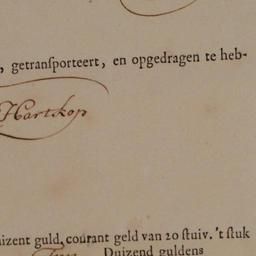 , getransporteert, en opgedragen te heb-
Hartkop
uizent guld, courant geld van 20 stuiv. 't stuk
Duizend guldens